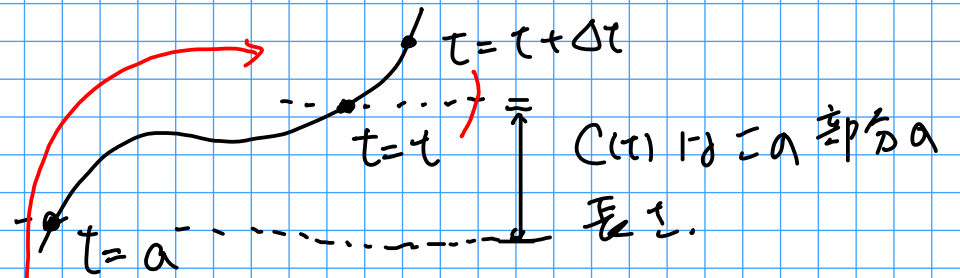 t=t+Δt
t=t
C(t)はこの部分の
長さ.
t=a